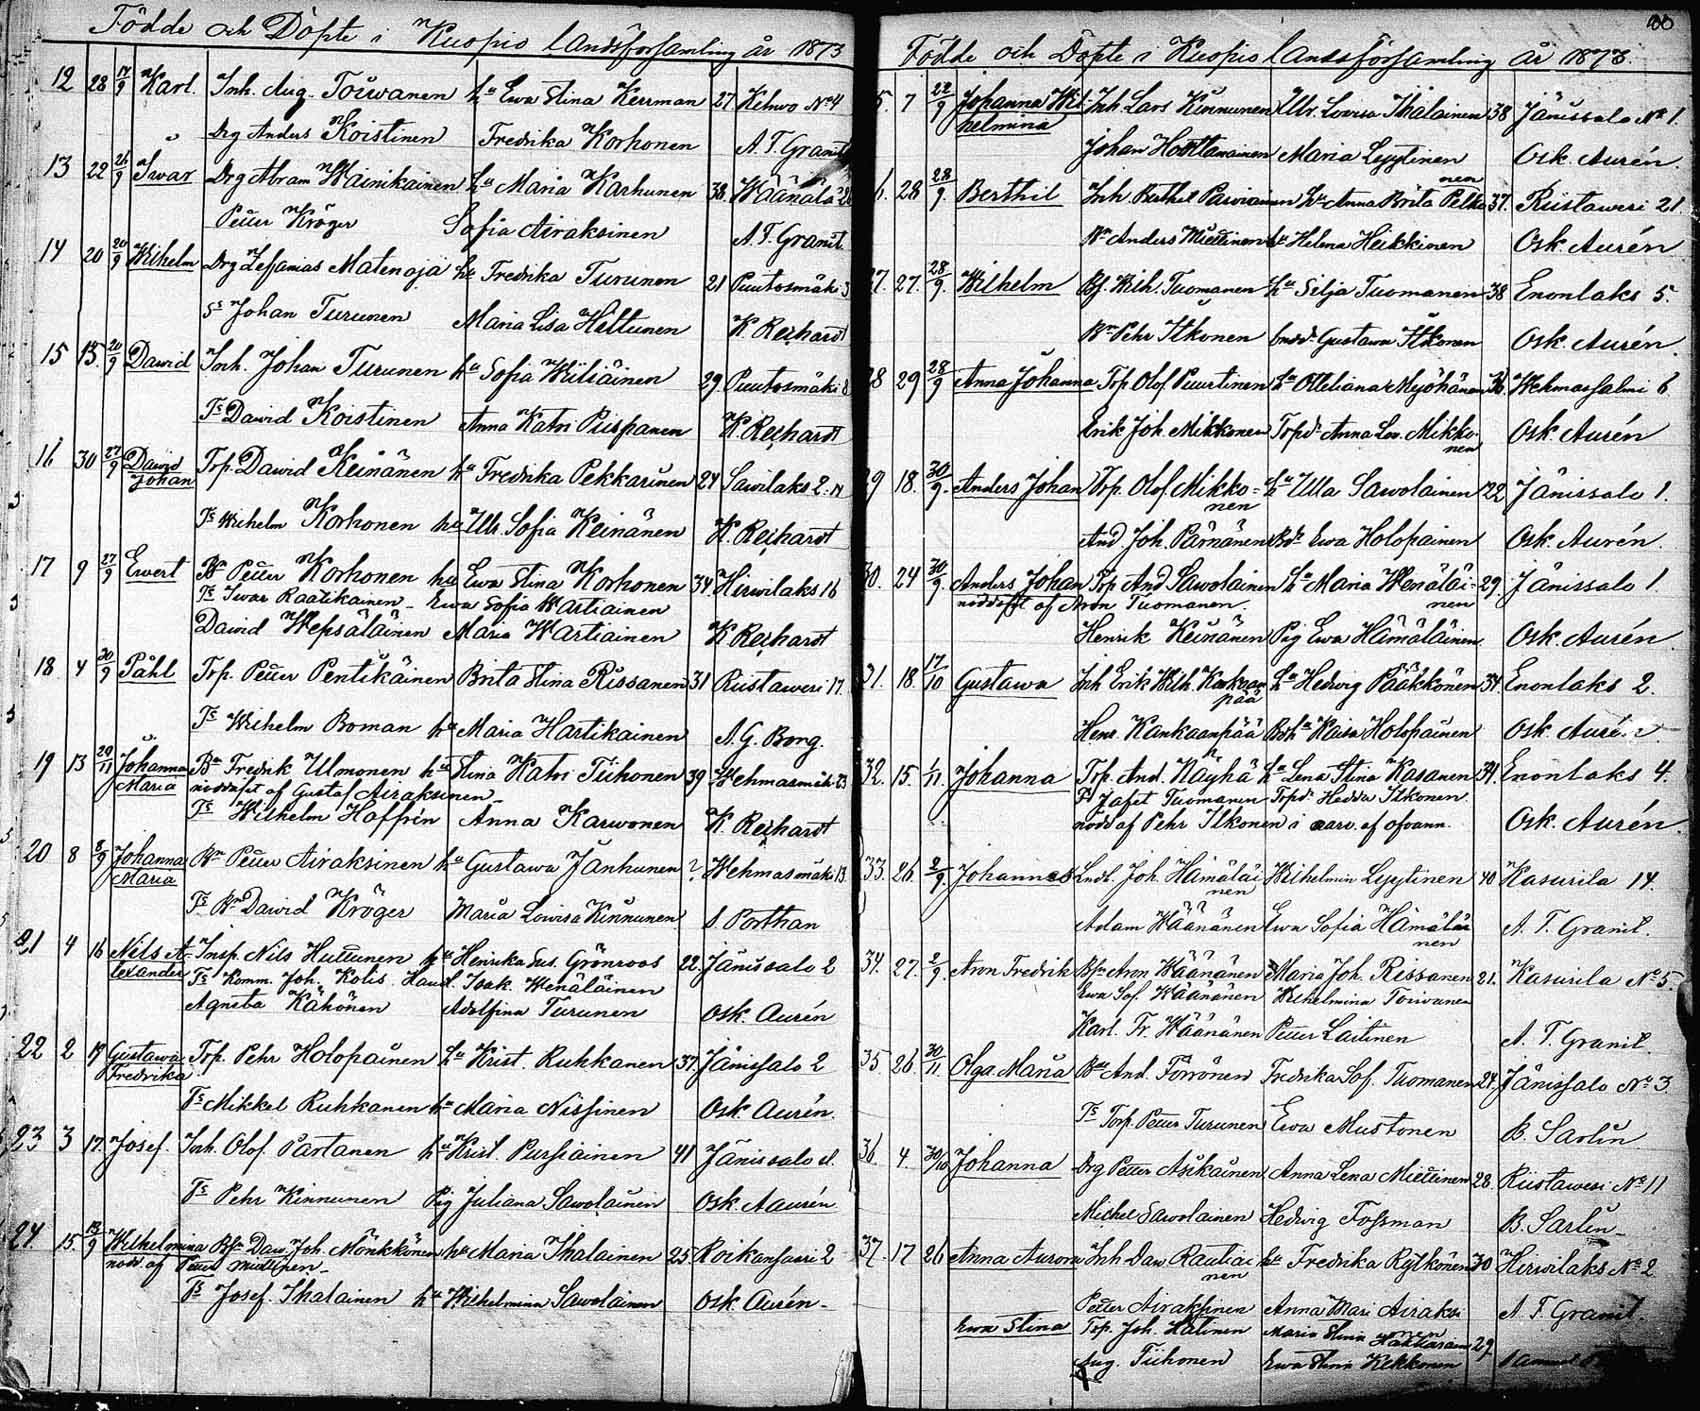 Födde och Döpte i Kuopio landsförsamling år 1873
12 28 17/9 Karl. Inh. Aug. Toiwanen hu Ewa Stina Kerrman 27. Kehwo No 4
Drg Anders Koistinen Fredrika Korhonen A. T. Granit
13 22 26/9 Iwar Drg Abram Wainikainen hu Maria Karhunen 38. Wäänälä 28
Petter Kröger Sofia Airaksinen A. T. Granit.
14 20 20/9 Wilhelm Drg Zefanias Matenoja hu Fredrika Turunen 21 Puutosmäki 3
Ss Johan Turunen Maria Lisa Hiltunen K Reihardt
15 13. 20/9 Dawid Inh. Johan Turunen hu Sofia Wiliäinen 29. Puutosmäki 8
Ts Dawid Koistinen Anna Katri Piispanen K. Reihardt
16 30 27/9 Dawid Johan Torp. Dawid Keinänen hu Fredrika Pekkarinen 24 Sawilaks 2.
Ts Wilhelm Korhonen hu Ulr. Sofia Keinänen K. Reihardt
17 9 27/9 Ewert Bn Petter Korhonen hu Ewa Stina Korhonen 34 Hirwilaks 16
Ts Iwar Raatikainen – Ewa Sofia Wartiainen
Dawid Wepsäläinen Maria Wartiainen K Reihardt
18. 4 20/9 Påhl Torp. Petter Pentikäinen Brita Stina Rissanen 31 Riistaweri 17.
Ts Wilhelm Boman hu Maria Hartikainen A. G. Borg.
19 13 29/11 Johanna Maria Bn Fredrik Ulmonen hu Stina Katri Tiihonen 39 Wehmasmäki 23
nöddöpt af Gustaf Airaksinen –
Ts Wilhelm Haffrén Anna Karwonen K. Reihardt
20 8 8/9 Johanna Maria Bn Petter Airaksinen hu Gustawa Janhunen ? Wehmasmäki 13.
Ts Bn Dawid Kröger Maria Lowisa Kinnunen S. Porthan
21 4 16 Nils Alexander Insp. Nils Huttunen hu Henrika Sus. Grönroos 22. Jänissalo 2
Ts Komm. Joh. Kolis. Isak Wenäläinen
Agneta Kähönen Adolfina Turunen Osk. Aurén
22 2 19 Gustawa Fredrika Torp. Pehr Holopainen hu Krist. Ruhkanen 37. Jänissalo 2
Ts Mikkel Ruhkanen hu Maria Nissinen Osk. Aurén.
23 3 17. Josef. Inh. Olof. Partanen hu Krist. Pursiainen 41 Jänissalo
Ts Pehr Kinnunen Pig Juliana Sawolainen Osk. Aaurén
24. 15. 13/9 Wilhelmina Bfr Daw. Joh. Mönkkönen hu Maria Ihalainen 25 Koikansaari 2
nödd. af Petter Miettinen –
Ts Josef Ihalainen hu Wilhelmina Sawolainen Osk. Aurén –
Födde och Döpte i Kuopio landsförsamling år 1873.
5. 7 22/9 Johanna Wilhelmina Inh. Lars Kinnunen Ulr. Lowisa Ihalainen 38 Jänissalo No 1.
Johan Maria Lyytinen Osk. Aurén.
6. 28 28/9. Berthil Inh. Berthel Parwiainen hu Anna Brita Pelkonen 37. Riistaweri 21.
Bn Anders Miettinen hu Helena Heikkinen Osk. Aurén
27. 27. 28/9. Wilhelm Bf. Wilh. Tuomanen hu Silja Tuomanen 38 Enonlaks 5.
Bn Pehr Itkonen Gustawa Itkonen Osk. Aurén.
28 29 28/9 Anna Johanna Torp Olof Puurtinen hu Otteliana Myöhänen 36. Wehmassalmi 6
Erik Joh. Mikkonen Torpd. Anna Lov. Mikkonen Osk. Aurén
29 18. 30/9. Anders Johan Torp. Olof Mikkonen hu Ulla Sawolainen 22 Jänissalo 1.
And. Joh. Pärnänen Ewa Holopainen Osk. Aurén.
30. 24 30/9 Anders Johan Torp And Sawolainen hu Maria Wenäläinen 29. Jänissalo 1.
nöddöpt af Aron Tuomanen.
Henrik Keinänen Pig Ewa Hämäläinen Osk. Aurén
31. 18. 17/10 Gustawa Inh Erik Wilh. Kankaanpää hu Hedwig Pääkkönen 34. Enonlaks 2.
Henr. Kankaanpää Kaisa Holopainen Osk. Aurén
32. 15. 1/11. Johanna Torp. And. Näyhä hu Lena Stina Kasanen 34. Enonlaks 4.
Jafet Tuomanen Torpd. Hedda Itkonen.
nödd af Pehr Itkonen i närv. af ofvann. Osk. Aurén.
33. 26. 2/9. Johannes Joh. Hämäläinen Wilhelmin Lyytinen 40 Kasurila 14.
Adam Wäänänen Ewa Sofia Hämäläinen A. T. Granit.
34. 27. 2/9. Aron Fredrik Bfn Aron Wäänänen Maria Joh. Rissanen 21. Kasurila No 5.
Ewa Sof. Wäänänen Wilhelmina Toiwanen
Karl. Fr. Wäänänen Petter Laitinen A. T. Granit.
35. 26. 30/11 Olga Maria Bn And. Törrönen Fredrika Sof. Tuomanen 24. Jänissalo No 3.
Ts Torp. Petter Turunen Ewa Mustonen B. Sarlin
36. 4. 30/10 Johanna Drg Petter Asikainen Anna Lena Miettinen 28. Riistaweri No 11
Michel Sawolainen Hedwig Fossman B. Sarlin
37. 17 26 Anna Aurora Inh Daw Rautiainen hu Fredrika Rytkönen 30 Hirwilaks No 2
Petter Airaksinen Anna Mari Airaksinen A. T. Granit.
Ewa Stina Torp. Joh. Hätinen Maria Stina 29.
Aug. Tiihonen Ewa Stina Kekkonen